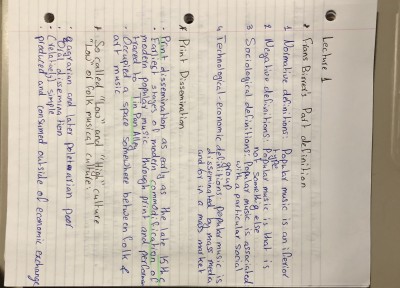 Lecture 1
* Frans Birrer's Part definition
1 Normative definitions: Popular music is an iferior
type
2 Negative definitions: Popular music is that is
not something else
3 Sociological definitions: Popular music is associated
with a particular social
group
4 Technological-economic definitions: popular music is
disseminated by mass media
and/or in a mass market
* Print Dissemination
· Print dissemination as early as the late 15th C
· Earlier stages of modern commodification of
modern popular music through print and
traced to in Pan Alley
· Occupied a space somewhere between folk &
art music
* So called "Low" and "High" culture
"Low" or folk musical culture:
· agrarian and later poor
· Oral dissemination
· (Relatively) simple
· produced and consumed outside of economic exchange